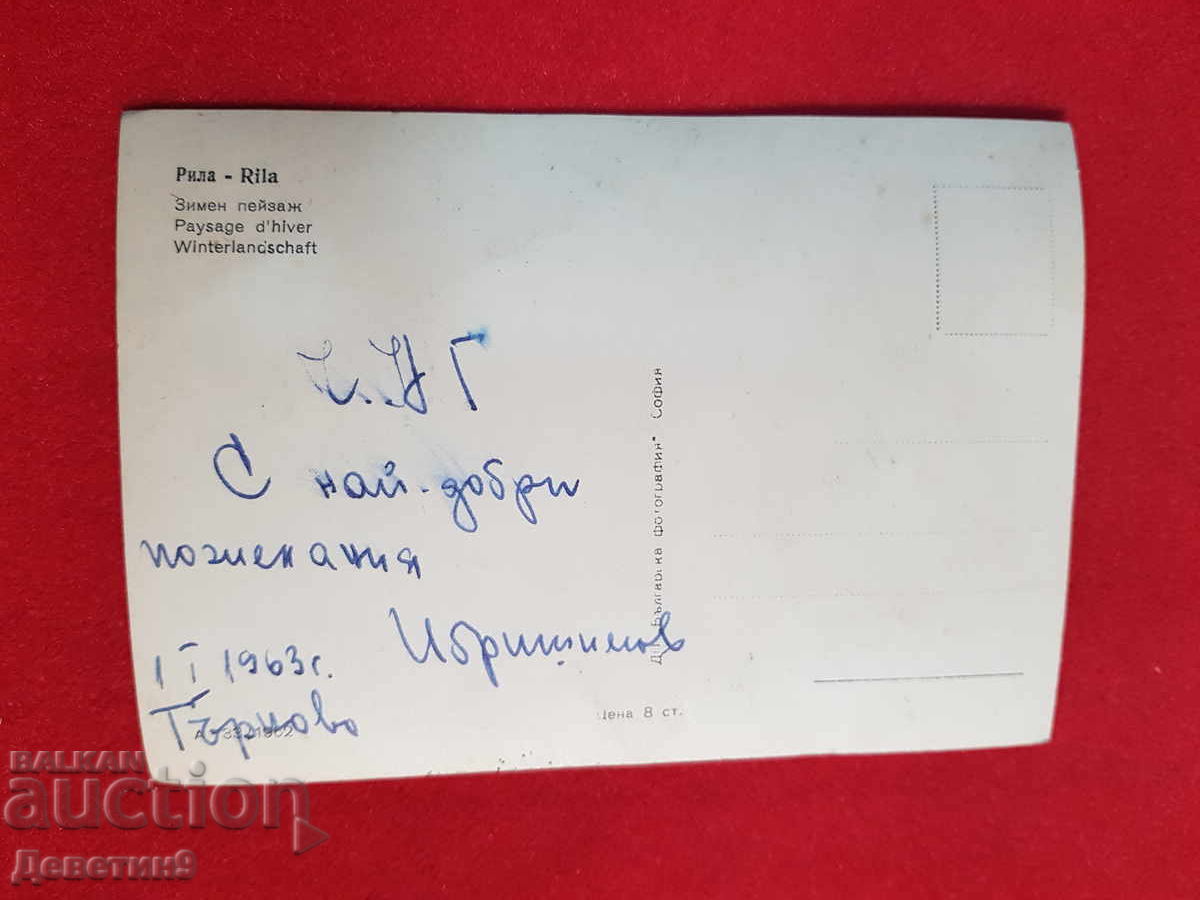 Рила - Rila
Зимен пейзаж
Paysage d'hiver
Winterlandschaft
Ч.Н Г
С най-добри
пожелания
Ибришимов
1 I 1963 г.
Търново
"Българска фотография" София
Цена 8 ст.
BALKAN
auction
Деветин9